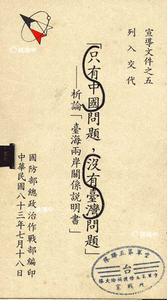 宣導文件之五
列入交代
「只有中國問題,沒有臺灣問題」
——析論「臺海兩岸關係說明書」
國防部總政治作戰部編印
中華民國八十三年七月十八日
台